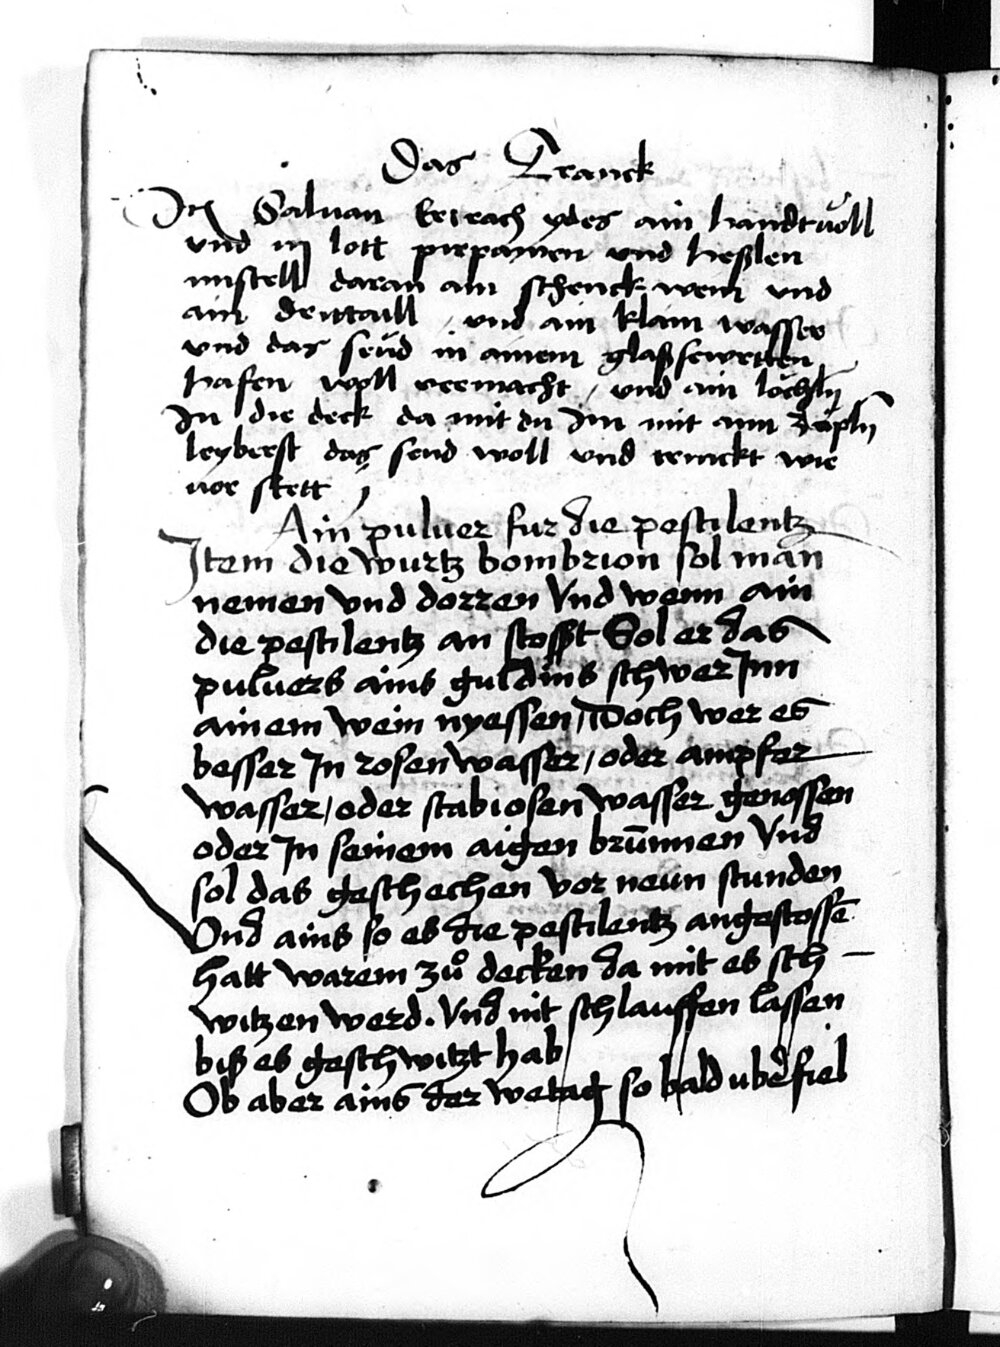 Das Tranck
Itm Saluan ydes ain handtuoll
vnd iij lott pirpamen vnd heßlen
mistell daran ain schenck wein vnd
ain drittaill / vnd ain klain wasser
vnd das seud in ainem glaßfewrtten
hafen woll vermacht / vnd ain löchly
In die deck da mit du Im mit aim zäpfly
leyberst das send woll vnd trinckt wie
vor stett
Ain puluer fur die pestilentz
Item die wurtz bombrion sol man
nemen vnd dorren Vnd wenn ain
die pestilentz an stosst Sol er das
puluers ains guldins schwer Inn
ainem wein nyessen / Doch wer es
besser In rosen wasser / oder ampfer
wasser / oder scabiosen wasser genossen
oder In seinem aigen brūnnen Vnd
sol das geschechen vor neun stunden
Vnd ains so es die pestilentz angestossē
hatt warem zů decken da mit es sch
witzen werd. Vnd nit schlauffen lassen
biß es geschwitzt hab
Ob aber ains der wetag so bald ubd̕fiel